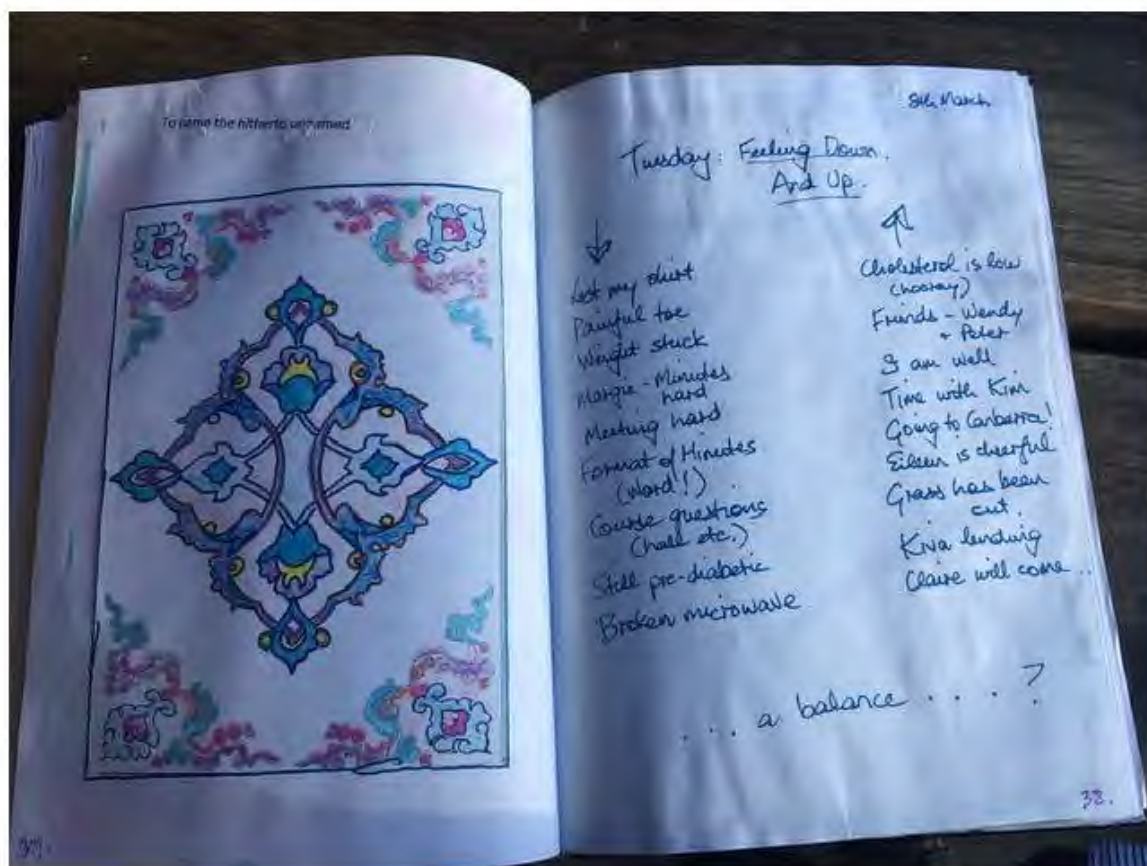 To name the hitherto unnamed
37.
8th March
Tuesday: Feeling Down.
And Up.
Lost my shirt
Painful toe
Weight stuck
Margie - Minutes
hard
Meeting hard
Format of Minutes
(Word!)
Course questions
(hall etc.)
Still pre-diabetic
Broken microwave
Cholesterol is low
(hooray)
Friends - Wendy
+ Peter
I am well
Time with Kim
Going to Canberra!
Eileen is cheerful
Grass has been
cut.
Kiva lending
Claire will come ..
... a balance .... ?
38.